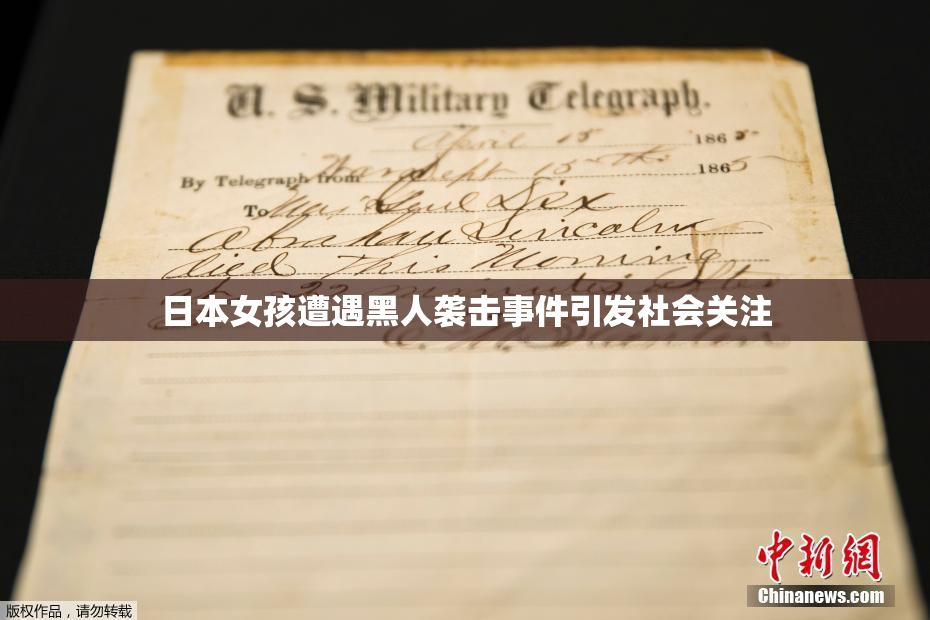 U. S. Military Telegraph.
April 15 1865
By Telegraph from War Dept 15th 1865
To Maj Genl Dix
Abraham Lincoln
died This Morning
at 22 minutes after
日本女孩遭遇黑人袭击事件引发社会关注
E. M. Stanton
中新网
Chinanews.com
版权作品，请勿转载